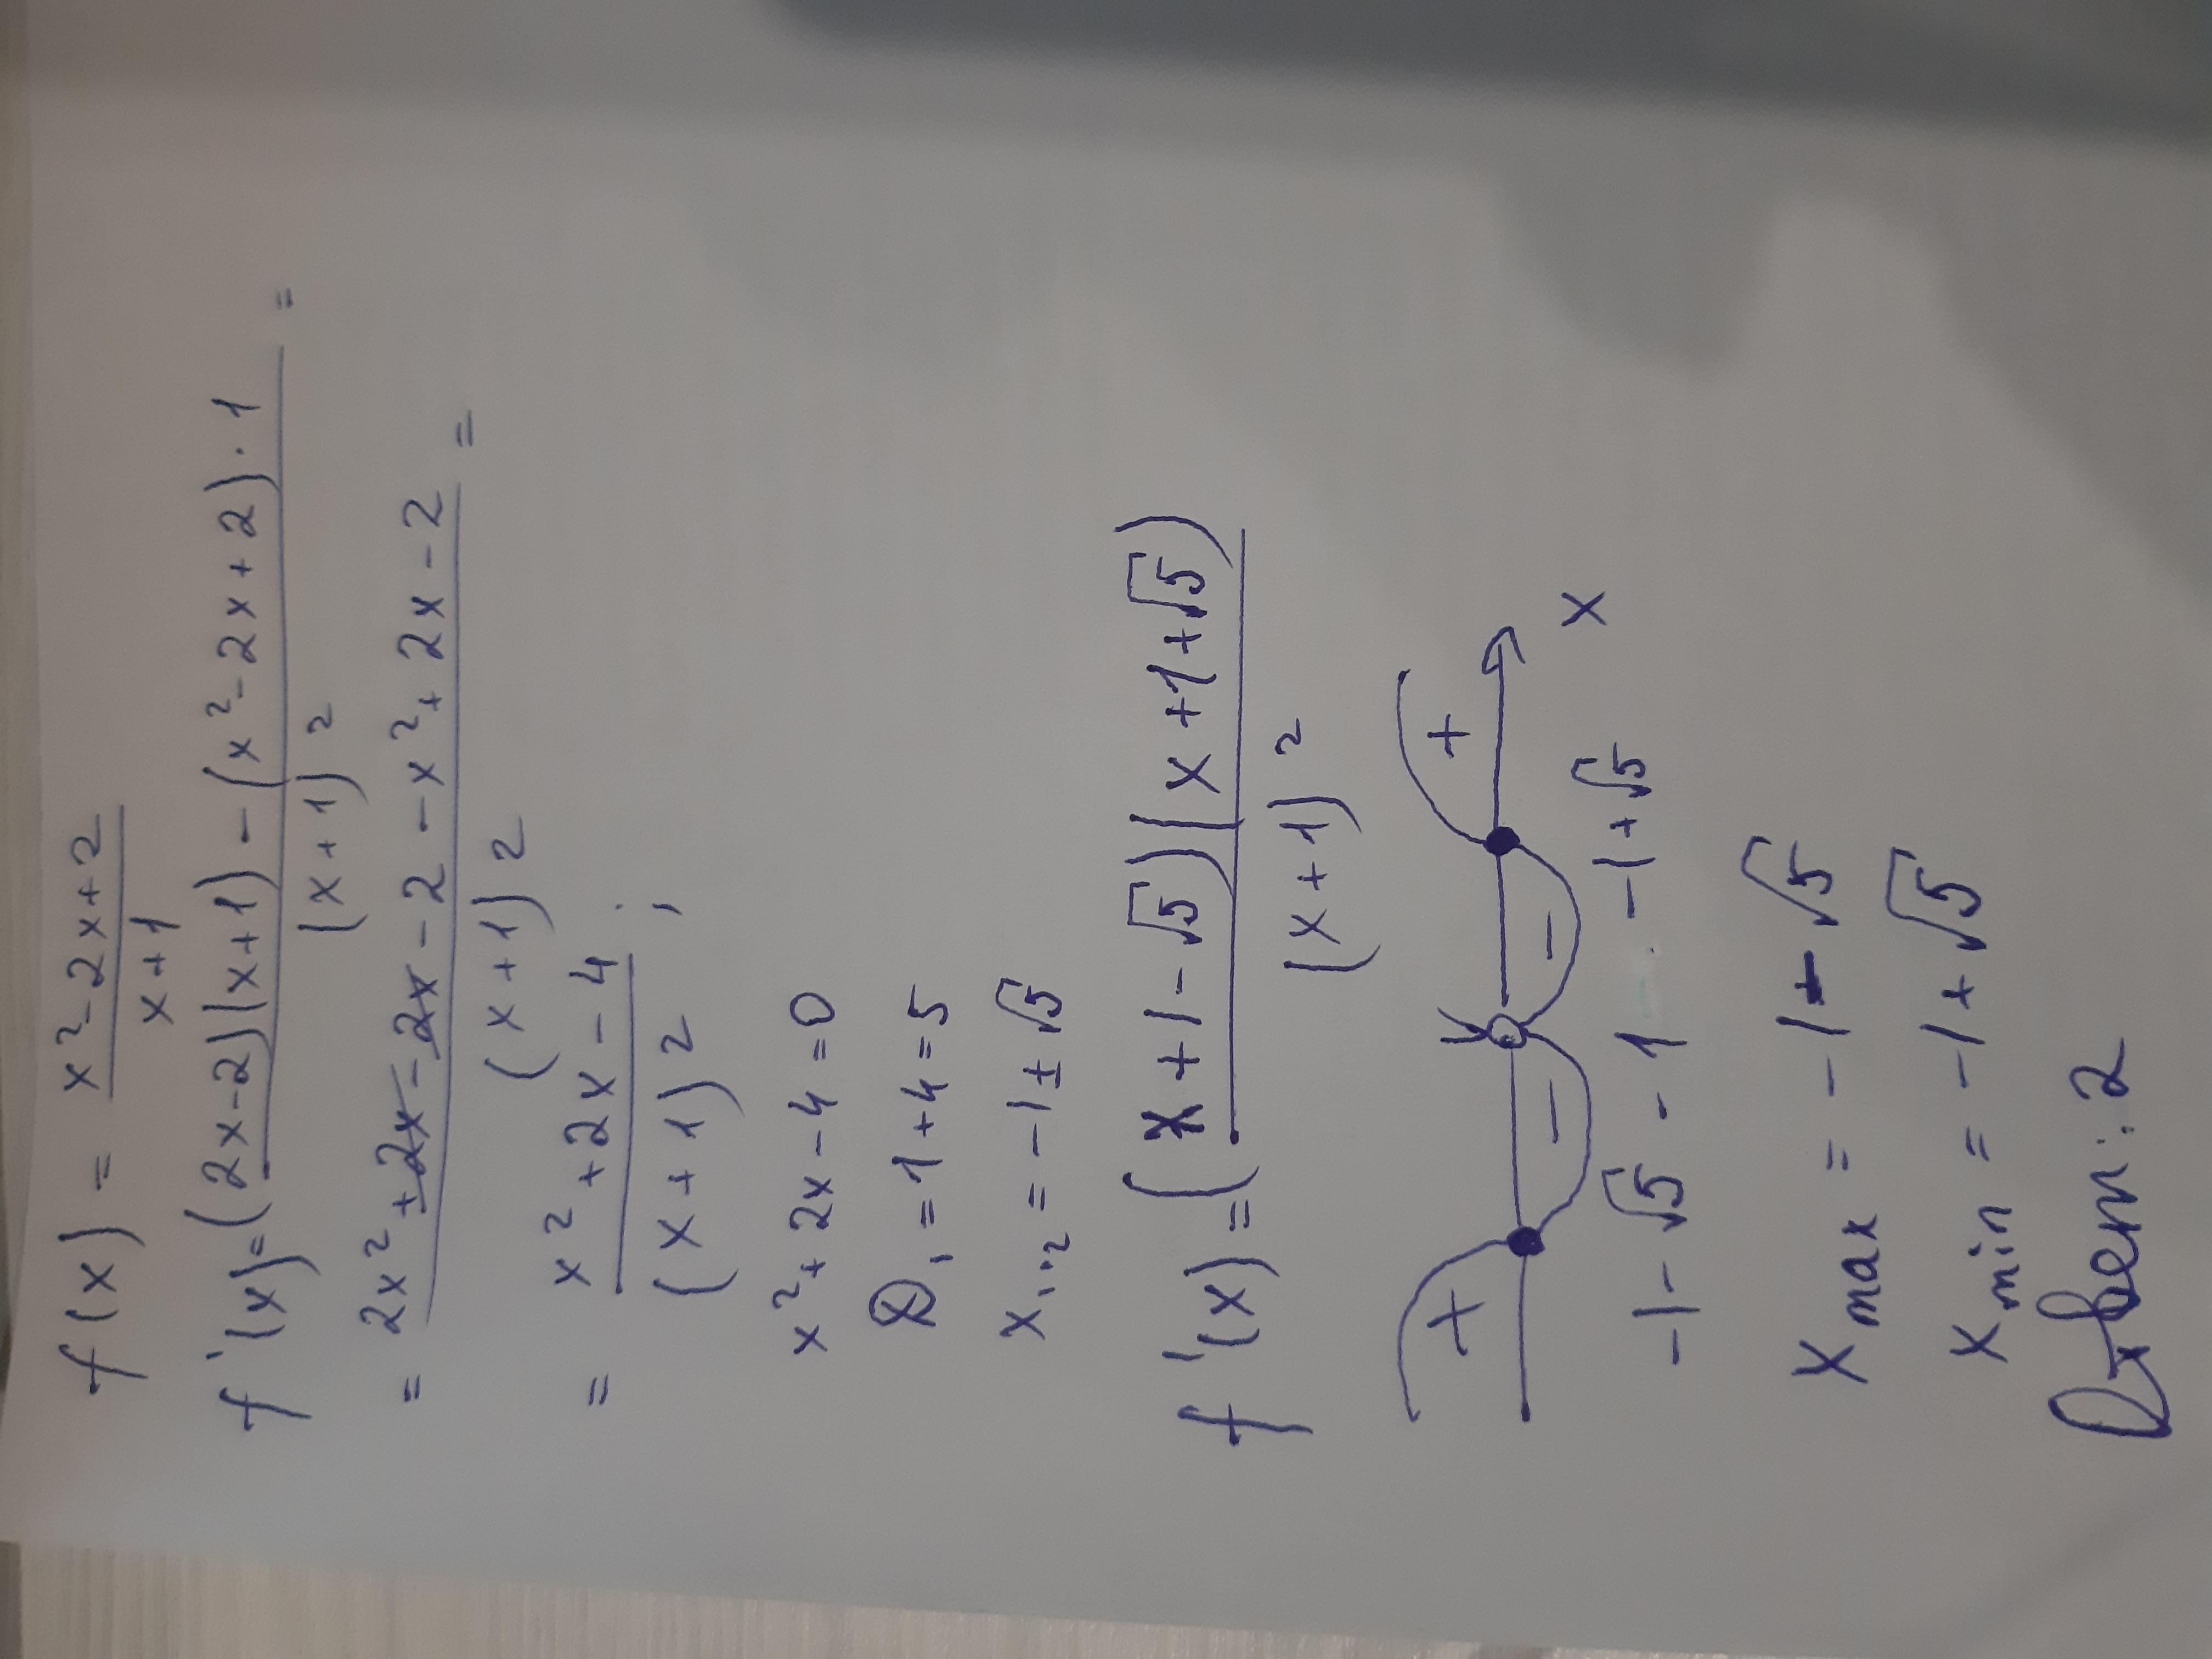 f(x) = (x² - 2x + 2)/(x + 1)
f'(x) = ((2x - 2)(x + 1) - (x² - 2x + 2) · 1)/(x + 1)² =
= (2x² + 2x - 2x - 2 - x² + 2x - 2)/(x + 1)² =
= (x² + 2x - 4)/(x + 1)² ;
x² + 2x - 4 = 0
D₁ = 1 + 4 = 5
x₁,₂ = -1 ± √5
f'(x) = ((x + 1 - √5)(x + 1 + √5))/(x + 1)²
+ - - +
-1 - √5 -1 -1 + √5 x
x max = -1 - √5
x min = -1 + √5
Ответ: 2